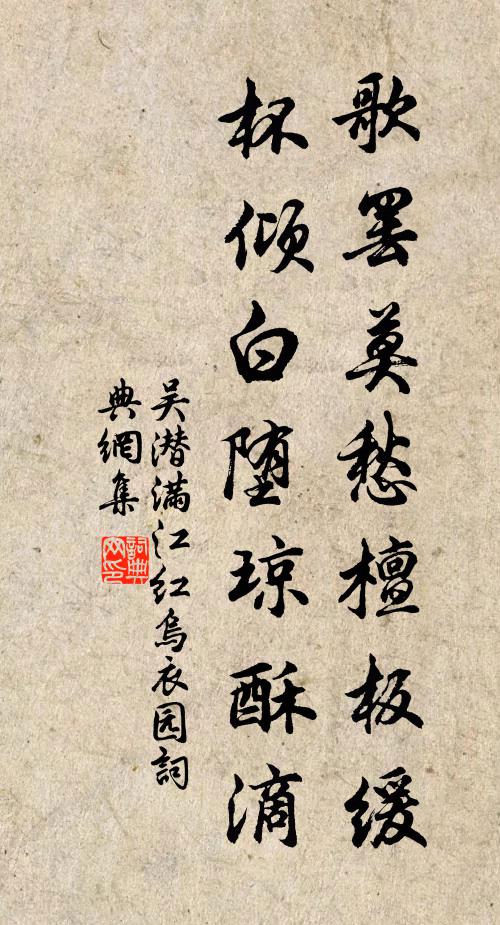 歌罢莫愁檀板缓
杯倾白堕琼酥滴
吴潜满江红乌衣园詞
典網集
詞典網印